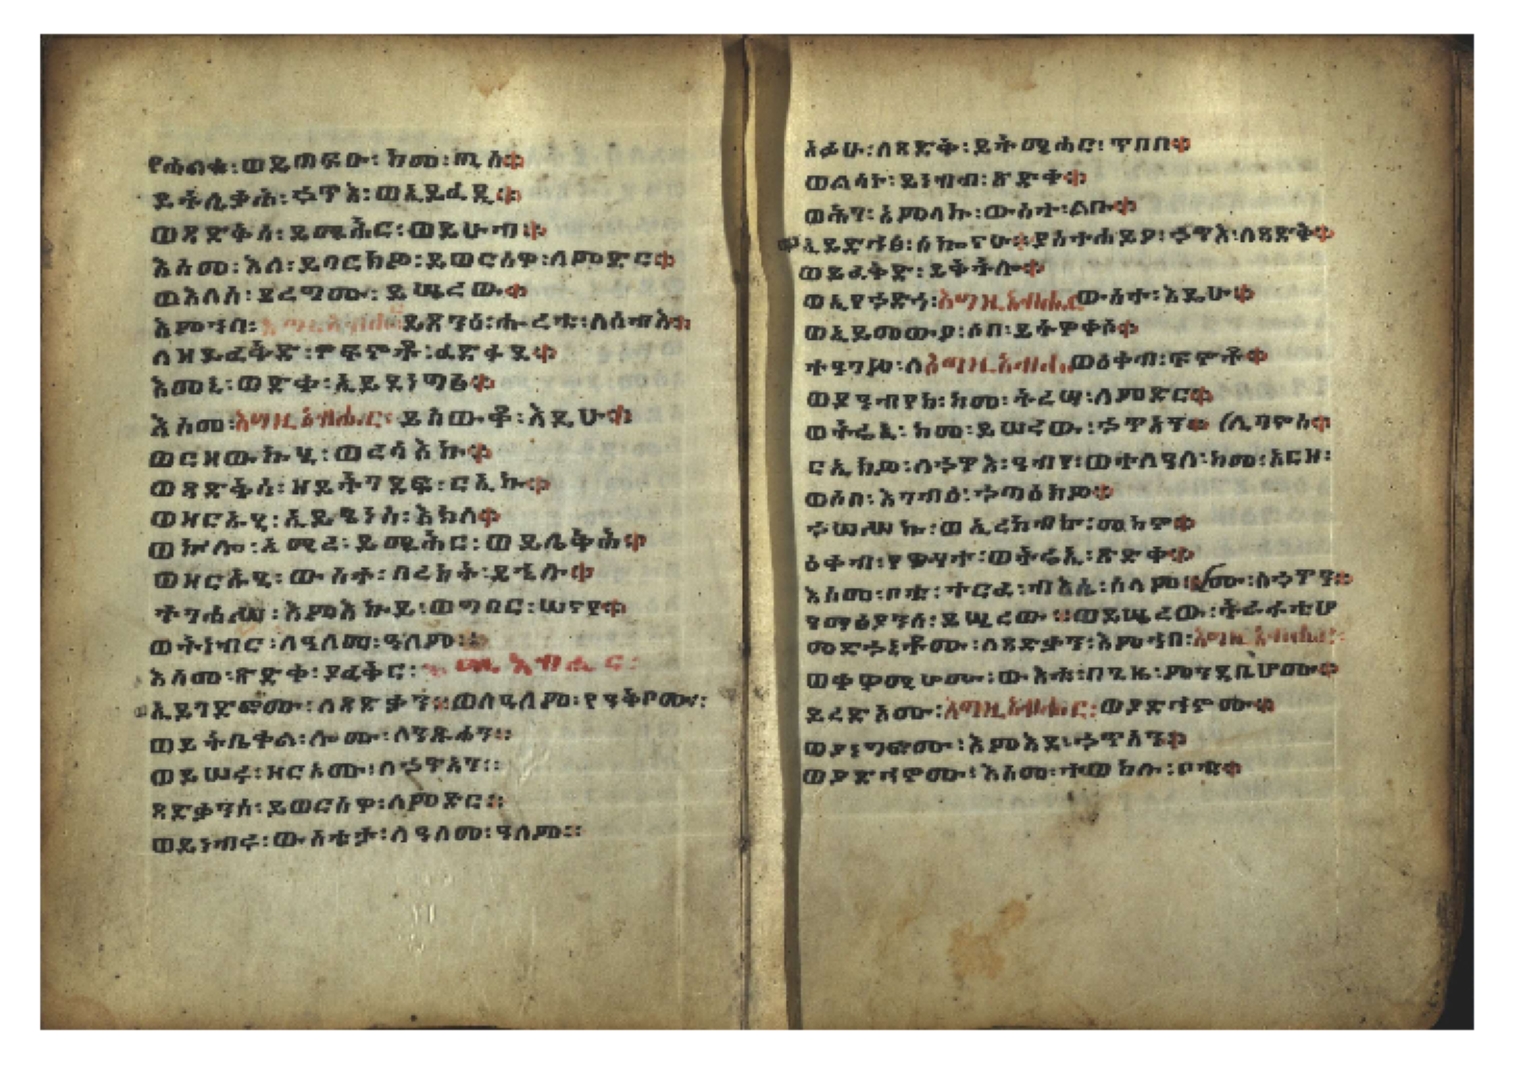 የሐልቁ፡ወይጠፍኡ፡ከመ፡ጢስ።
ይትሌቃሕ፡ኃጥእ፡ወኢይፈዲ።
ወጻድቅሰ፡ይሜሕር፡ወይሁብ።
እስመ፡እለ፡ይባርክዎ፡ይወርስዋ፡ለምድር።
ወእለሰ፡ይረግሙ፡ይሤረው።
እምኀበ፡እግዚአብሔር፡ይጸንዕ፡ሑረቱ፡ለሰብእ።
ለዘይፈቅድ፡ፍኖቶ፡ፈድፋደ።
እመኒ፡ወድቀ፡ኢይደነግፅ።
እስመ፡እግዚአብሔር፡ይስውቆ፡እዴሁ።
ወርዘውኩሂ፡ወረሳእኩ።
ወጻድቅሰ፡ዘይትገደፍ፡ርኢኩ።
ወዘርኡሂ፡ኢይጼነስ፡እክለ።
ወኵሎ፡አሚረ፡ይሜሕር፡ወይሌቅሕ።
ወዘርኡሂ፡ውስተ፡በረከት፡ይሄሉ።
ተገሐሥ፡እምእኩይ፡ወግበር፡ሠናየ።
ወትነብር፡ለዓለመ፡ዓለም።
እስመ፡ጽድቀ፡ያፈቅር፡እግዚአብሔር፡
ኢይገድፎሙ፡ለጻድቃን።ወለዓለም፡የዓቅቦሙ፡
ወይትቤቀል፡ሎሙ፡ለንጹሓን።
ወይሠሩ፡ዘርኦሙ፡ለኃጥኣን።
ጻድቃንሰ፡ይወርስዋ፡ለምድር።
ወይነብሩ፡ውስቴታ፡ለዓለመ፡ዓለም።
አፉሁ፡ለጻድቅ፡ይትሜሐር፡ጥበበ።
ወልሳኑ፡ይነብብ፡ጽድቀ።
ወሕገ፡አምላኩ፡ውስተ፡ልቡ።
ወኢይድኅፅ፡ሰኰናሁ።ያስተሐይጾ፡ኃጥእ፡ለጻድቅ።
ወይፈቅድ፡ይቅትሎ።
ወኢየኃድጎ፡እግዚአብሔር፡ውስተ፡እዴሁ።
ወኢይመውኦ፡ሶበ፡ይትዋቀሶ።
ተዓገሦ፡ለእግዚአብሔር፡ወዕቀብ፡ፍኖቶ።
ወያዓብየከ፡ከመ፡ትረሣ፡ለምድር።
ወትሬኢ፡ከመ፡ይሠረው፡ኃጥኣን። (ሊባኖስ።
ርኢክዎ፡ለኃጥእ፡ዓብየ፡ወተለዓለ፡ከመ፡አርዘ፡
ወሶበ፡እገብዕ፡ኃጣዕክዎ።
ኃሠሥኩ፡ወኢረከብኩ፡መካኖ።
ዕቀብ፡የዋሃተ፡ወትሬኢ፡ጽድቀ።
እስመ፡ቦቱ፡ተርፈ፡ብእሲ፡ሰላም።
የማፅያንሰ፡ይሤረው።ወይሤረው፡ትራፋቲሆ
መድኃኒቶሙ፡ለጻድቃን፡እምኀበ፡እግዚአብሔር፡
ወቀዋሚሆሙ፡ውእቱ፡በጊዜ፡ምንዳቤሆሙ።
ይረድኦሙ፡እግዚአብሔር፡ወያድኅኖሙ።
ወያነግፎሙ፡እምእደ፡ኃጥኣን።
ወያድኅኖሙ፡እስመ፡ተወከሉ፡ቦቱ።